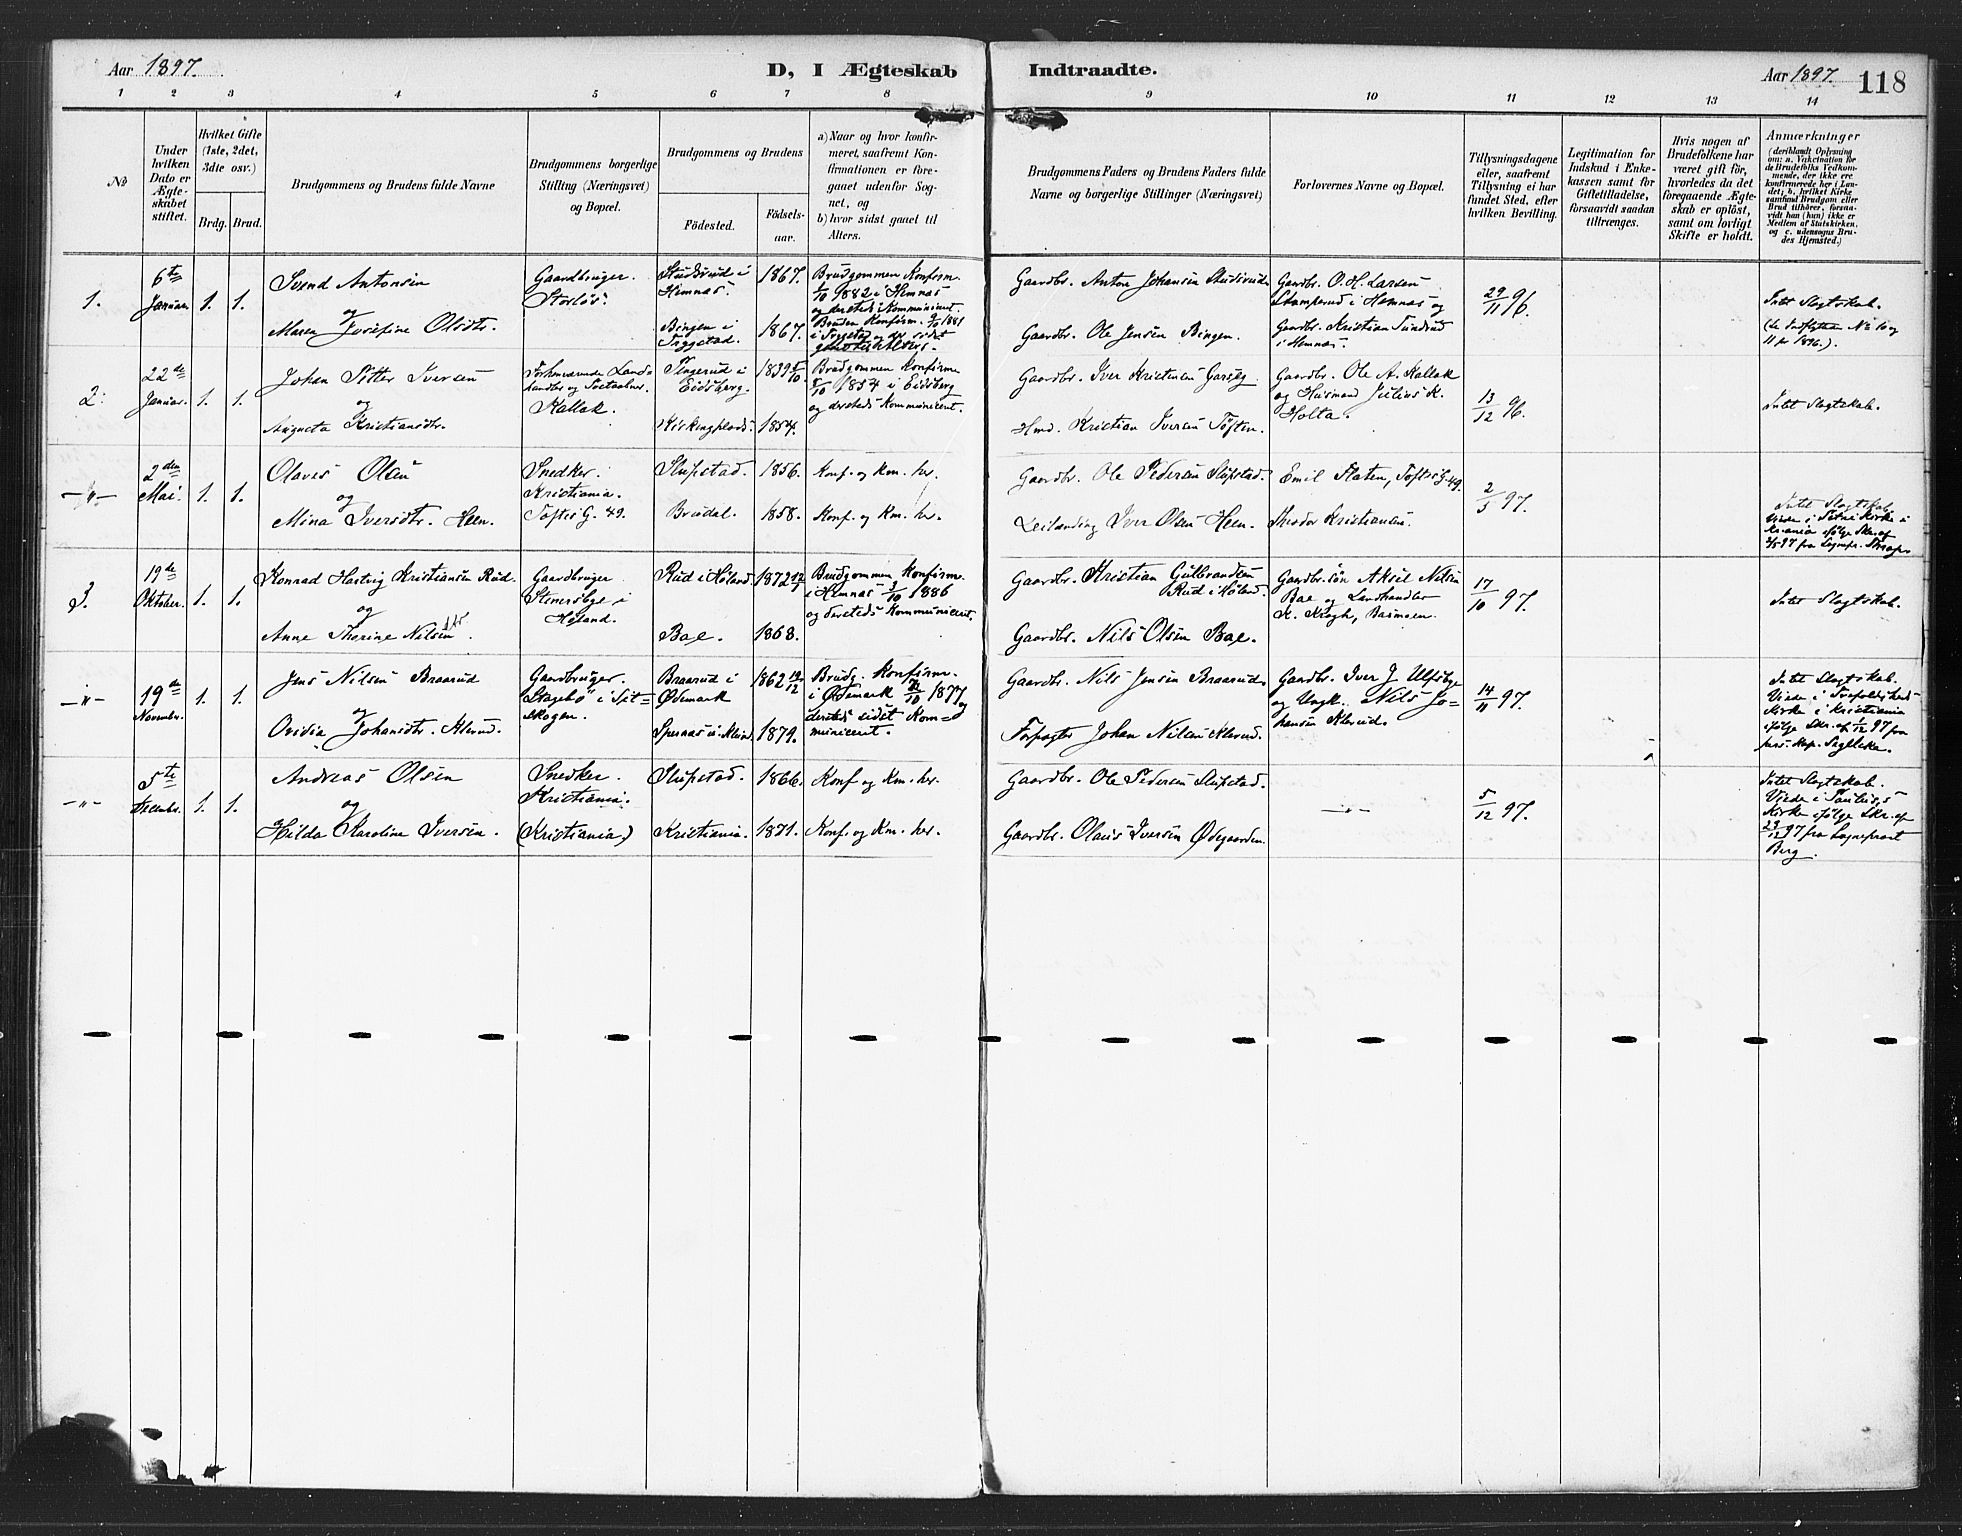 Aar 1897. D, I Ægteskab Indtraadte. Aar 1897. 118
1 2 3 4 5 6 7 8 9 10 11 12 13 14
No
Under hvilken Dato er Ægteskabet stiftet.
Hvilket Gifte (1ste, 2det, 3die osv.)
Brdg. Brud.
Brudgommens og Brudens fulde Navne
Brudgommens borgerlige Stilling (Næringsvei) og Bopæl.
Brudgommens og Brudens
Födested.
Födselsaar.
a) Naar og hvor konfirmeret, saafremt Konfirmationen er foregaaet udenfor Sognet, og
b) hvor sidst gaaet til Alters.
Brudgommens Faders og Brudens Faders fulde Navne og borgerlige Stillinger (Næringsvei)
Forlovernes Navne og Bopæl.
Tillysningsdagene eller, saafremt Tillysning ei har fundet Sted, efter hvilken Bevilling.
Legitimation for Indskud i Enkekassen samt for Giftetilladelse, forsaavidt saadan tiltrænges.
Hvis nogen af Brudefolkene har været gift før, hvorledes da det foregaaende Ægteskab er opløst, samt om lovligt Skifte er holdt.
Anmærkninger
(deriblandt Oplysning om: a. Vakcination for de Brudefolks Vedkommende, der ikke ere konfirmerede her i Landet; b. hvilket Kirkesamfund Brudgom eller Brud tilhører, forsaavidt han (hun) ikke er Medlem af Statskirken, og c. udensogns Brudes Hjemsted.)
1. 6te Januar 1. 1.
Svend Antonsen
og
Maren Josefine Olsdtr.
Gaardbruger.
Storløs.
Studsrud i Hemnas.
Bingen i Tryggestad.
1867.
1867.
Brudgommen Konfirm.
1882 i Hemnas
og dersteds Kommuniceret.
Bruden Konfirm. 1881
Gaardbr. Anton Johansen Studsrud.
Gaardbr. Ole Jensen Bingen.
Gaardbr. O. H. Larsen
Stamperud i Hemnas og
Gaardbr. Kristian Tundrud
i Hemnas.
29/11 96.
Intet Slagtskab.
(se Indflyttede No 10 og
11 for 1896.).
2. 22de Januar. 1. 1.
Johan Petter Iversen
og
Augusta Kristiansdtr.
Forhenværende Landhandler og
Kallak.
Tingerud i Eidsberg.
1839
1854.
Brudgommen Konfirm
1854 i Eidsberg
og dersteds Kommuniceret.
Gaardbr. Iver Kristensen
Hmd. Kristian Iversen Toften.
Gaardbr. Ole A. Kallak
og Husmand Julius K.
Holta.
13/12 96.
Intet Slagtskab.
—"— 2den Mai. 1. 1.
Olaves Olsen
og
Mina Iversdtr. Heen.
Snedker.
Kristiania.
Toftes G. 49.
Slupstad. 1856.
Brudal. 1858.
Konf. og Km. her.
Konf. og Km. her.
Gaardbr. Ole Pedersen Slupstad.
Leilænding Iver Olsen Heen.
Emil Flaten, Toftes G. 49.
Theodor Kristiansen.
2/5 97.
Intet Slagtskab.
Viede i Petri Kirke i
Kr.ania ifølge Skr. af
2/5 97 fra Sognepr.
3. 19de Oktober. 1. 1.
Konrad Hartvig Kristiansen Rud.
og
Anne Therine Nilsen.
Gaardbruger
Stenersbye i
Høland.
Rud i Høland. 1872
Bae. 1868.
Brudgommen Konfirm.
i Hemnas 3/10 1886
og dersteds Kommuniceret.
Gaardbr. Kristian Gulbrandsen
Rud i Høland.
Gaardbr. Nils Olsen Bae.
Gaardbr.søn Aksel Nilsen
Bae og Landhandler
K. Krogh, Basmoen.
17/10 97.
Intet Slagtskab.
—"— 19de November. 1. 1.
Jens Nilsen Braarud
og
Ovidia Johansdtr. Klerud.
Gaardbruger.
Stagebø i Sitskogen.
Braarud i Ødemark
1862 19/12
1879.
Brudg. Konfirm.
i Ødemark 1877 og
dersteds sidst Kommuniceret.
Gaardbr. Nils Jensen Braarud.
Forpagter Johan Nilsen Klerud.
Gaardbr. Iver J. Ulfsbye
og Ungk. Nils Johansen Klerud.
14/11 97.
Intet Slagtskab.
Viede i Trefoldigheds
Kirke i Kristiania
ifølge Skr. af 1/12 97 fra
—"— 5te December. 1. 1.
Andreas Olsen
og
Hilda Karoline Iversen.
Snedker.
Kristiania.
(Kristiania)
Slupstad. 1866.
Kristiania. 1871.
Konf og Km. her.
Konf. og Km. her.
Gaardbr. Ole Pedersen Slupstad.
Gaardbr. Olaus Iversen Ødegaarden.
—"—
5/12 97.
Intet Slagtskab.
Viede i Paulus's
Kirke ifølge Skr. af
23/12 97 fra Sogneprest
Berg.